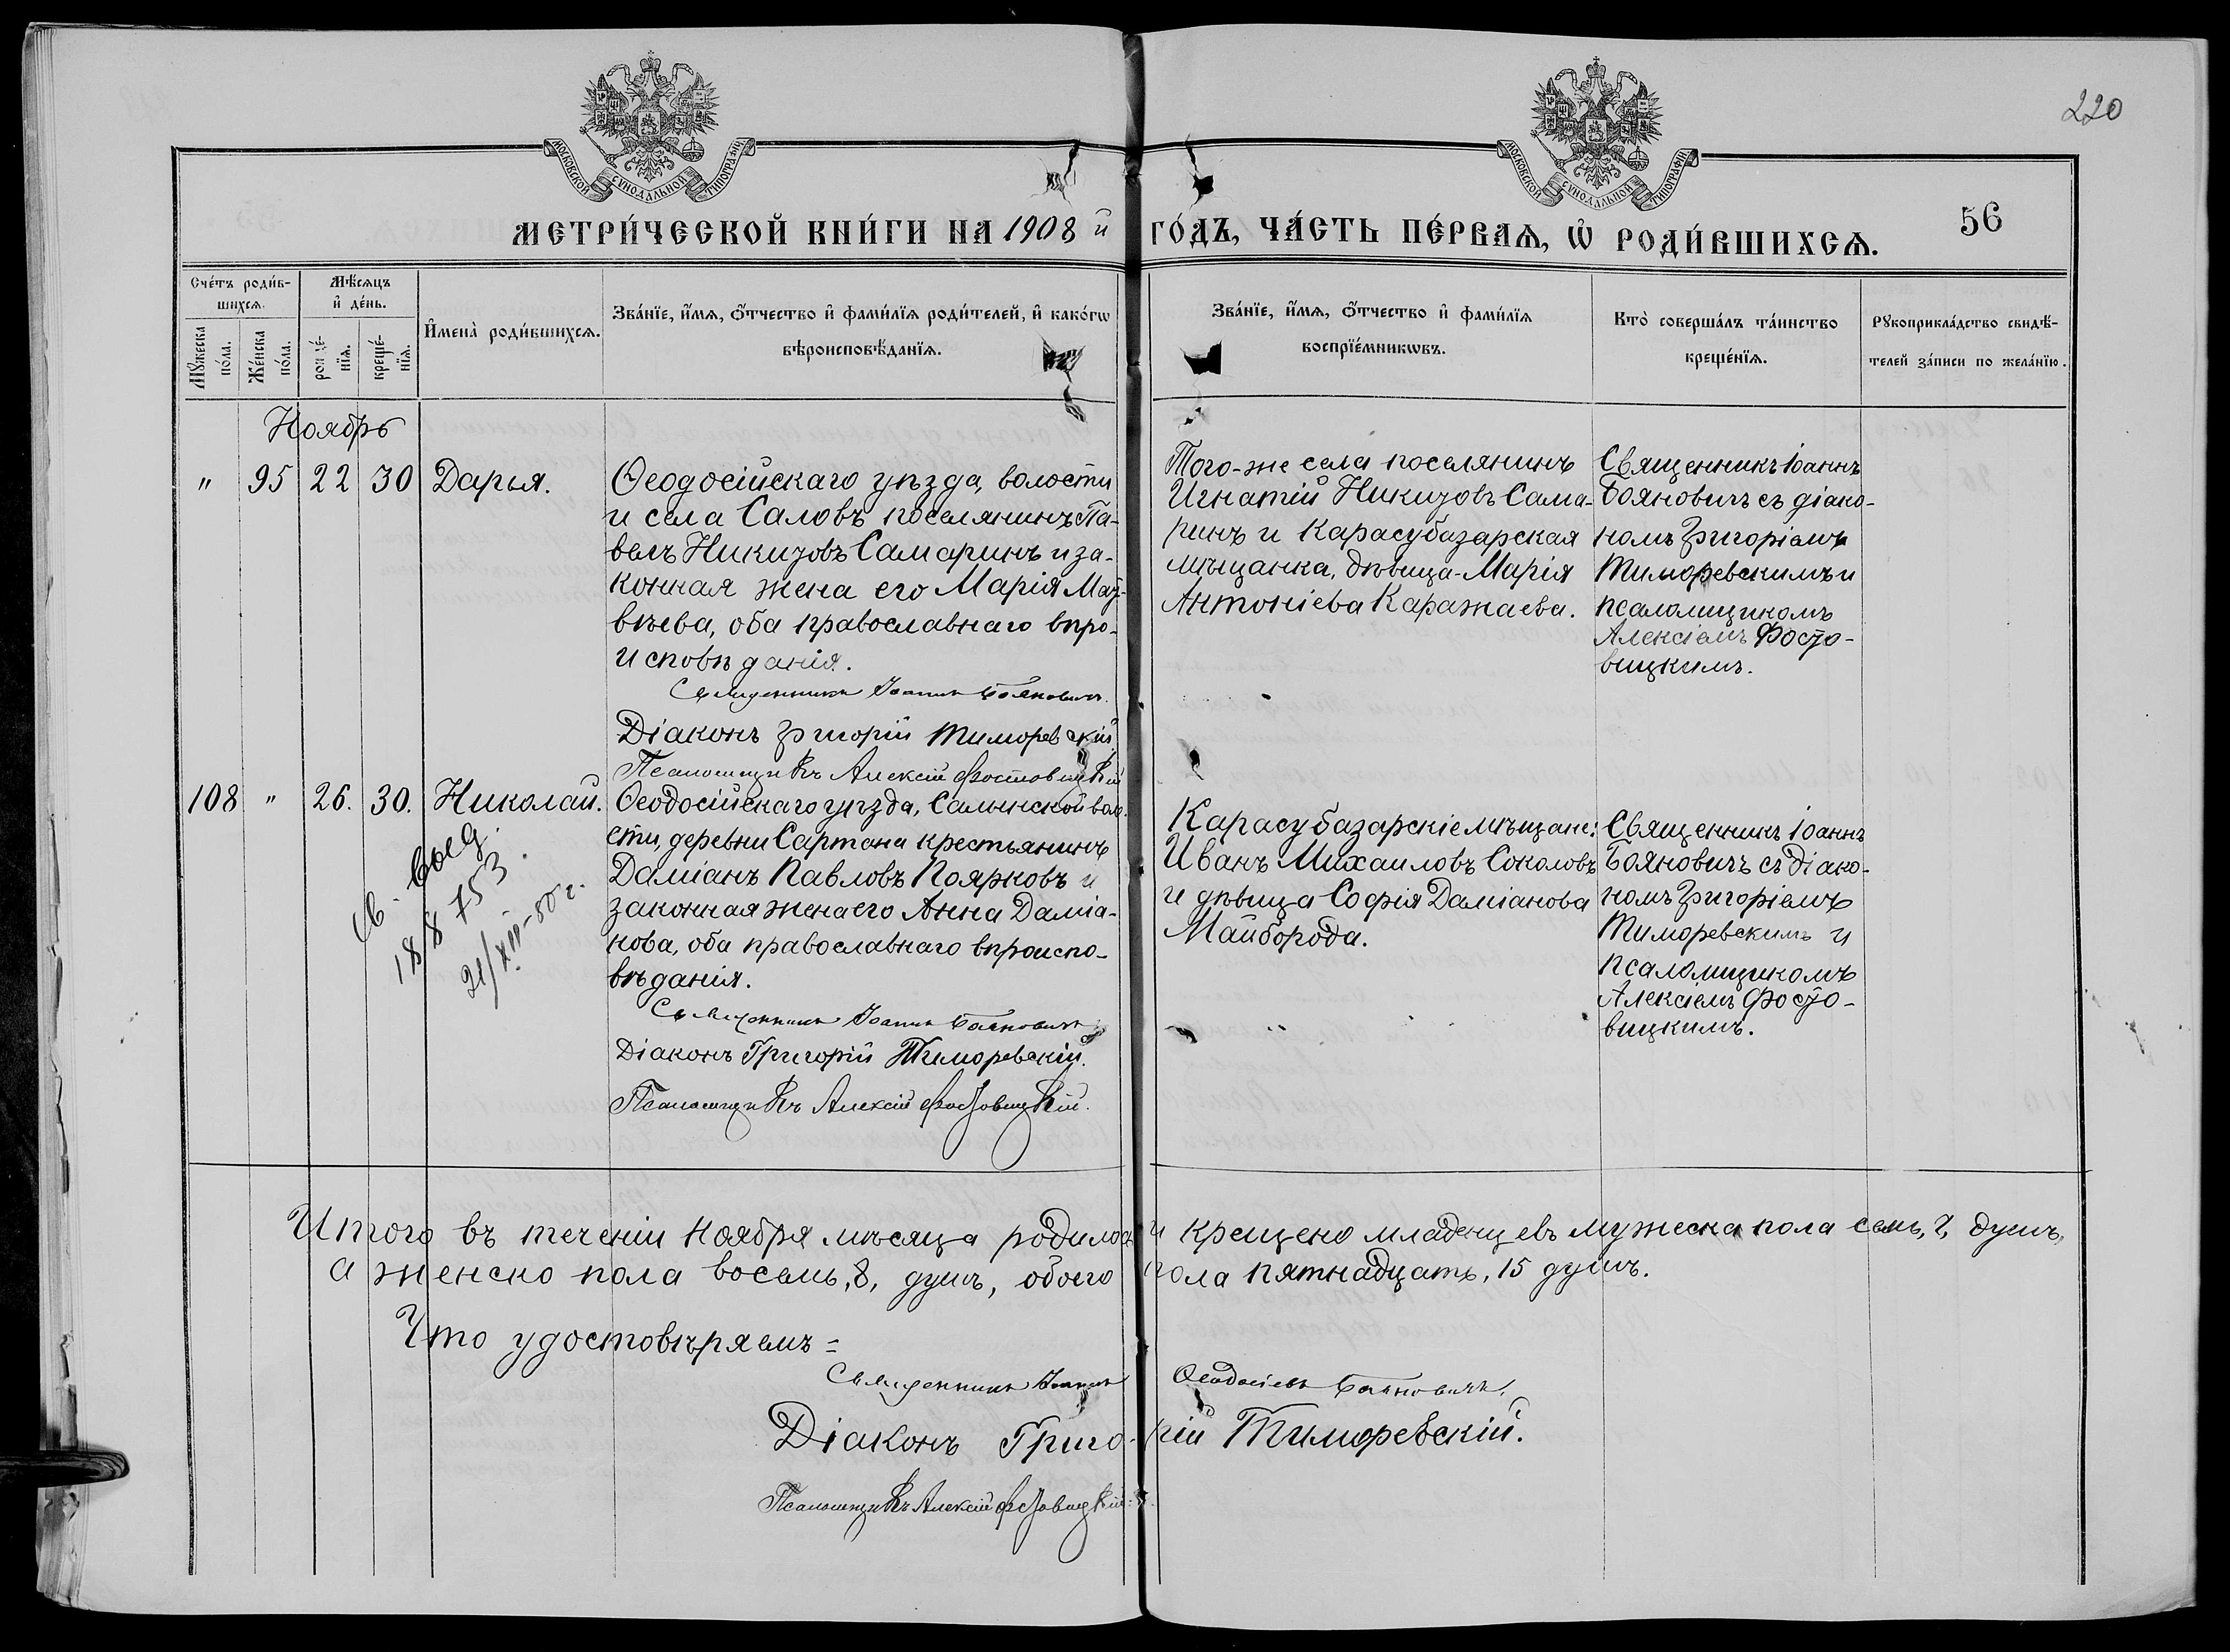 220
МОСКОВСКОЙ СѴНОДАЛЬНОЙ ТИПОГРАФІИ
МОСКОВСКОЙ СѴНОДАЛЬНОЙ ТИПОГРАФІИ
МЕТРИ́ЧЕСКОЙ КНИ́ГИ НА 1908 й ГО́ДЪ, ЧА́СТЬ ПЕ́РВАѦ, Ѽ РОДИ́ВШИХСѦ.
56
Сче́тъ роди́в-
шихсѧ.
Мѣ́сѧцъ
и҆ де́нь.
Мꙋ́жеска
по́ла.
Же́нска
по́ла.
рожде́-
нїѧ.
креще́-
нїѧ.
И҆мена̀ роди́вшихсѧ.
Зва́нїе, и҆́мѧ, ѻ҆́тчество и҆ фами́лїѧ роди́телей, и҆ како́гѡ
вѣроисповѣ́данїѧ.
Зва́нїе, и҆́мѧ, ѻ҆́тчество и҆ фами́лїѧ
воспрїе́мникѡвъ.
Кто̀ соверша́лъ та́инство
креще́нїѧ.
Рꙋкоприкла́дство свидѣ́-
телей за́писи по жела́нїю.
Ноябрь
" 95 22 30 Дарья.
Ѳеодосійскаго уѣзда, волости
и села Саловъ поселянинъ Па-
велъ Никитовъ Самаринъ и за-
конная жена его Марія Мат-
вѣева, оба православнаго вѣро-
исповѣданія.
Священникъ Іоаннъ Бояновичъ.
Діаконъ Григорій Тиморевскій.
Псаломщикъ Алексій Фостовицкій
Того-же села поселянинъ
Игнатій Никитовъ Сама-
ринъ и Карасубазарская
мѣщанка, дѣвица-Марія
Антоніева Каражаева.
Священникъ Іоаннъ
Бояновичъ съ діако-
номъ Григоріемъ
Тиморевскимъ и
псаломщикомъ
Алексіемъ Фосто-
вицкимъ.
108 " 26. 30. Николай.
Св. выд.
188753.
21/XII-50 г.
Ѳеодосійскаго уѣзда, Салынской воло-
сти, деревни Сартана крестьянинъ
Даміанъ Павловъ Поярковъ и
законная жена его Анна Даміа-
нова, оба православнаго вѣроиспо-
вѣданія.
Священникъ Іоаннъ Бояновичъ
Діаконъ Григорій Тиморевскій.
Псаломщикъ Алексій Фостовицкій.
Карасубазарскіе мѣщане:
Иванъ Михаиловъ Соколовъ
и дѣвица Софія Даміанова
Майборода.
Священникъ Іоаннъ
Бояновичъ съ діако-
номъ Григоріемъ
Тиморевскимъ и
псаломщикомъ
Алексіемъ Фосто-
вицкимъ.
Итого въ теченіи Ноября мѣсяца родилось и крещено младенцевъ мужеска пола семь, 7, душъ,
а женско пола восемь, 8, душъ, обоего пола пятнадцать, 15 душъ.
Что удостовѣряемъ =
Священникъ Іоаннъ Ѳеодосіевъ Бояновичъ.
Діаконъ Григорій Тиморевскій.
Псаломщикъ Алексій Фостовицкій.